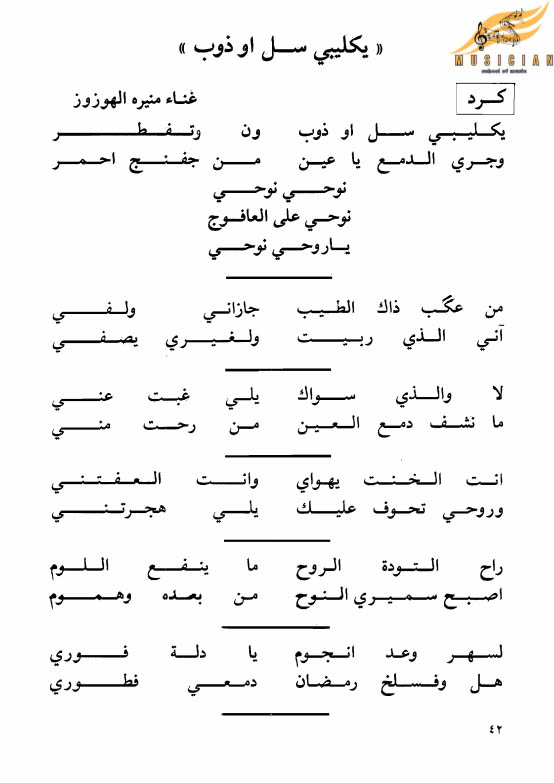 MUSICIAN
school of music
« يكليبي سل او ذوب »
كرد
غناء منيره الهوزوز
يكليبي سل او ذوب ون وتفطر
وجري الدمع يا عين من جفنج احمر
نوحي نوحي
نوحي على العافوج
ياروحي نوحي
من عكَب ذاك الطيب جازاني ولفي
آني الذي ربيت ولغيري يصفي
لا والذي سواك يلي غبت عني
ما نشف دمع العين من رحت مني
انت الخنت يهواي وانت العفتني
وروحي تحوف عليك يلي هجرتني
راح التودة الروح ما ينفع اللوم
اصبح سميري النوح من بعده وهموم
لسهر وعد انجوم يا دلة فوري
هل وفسلخ رمضان دمعي فطوري
٤٢